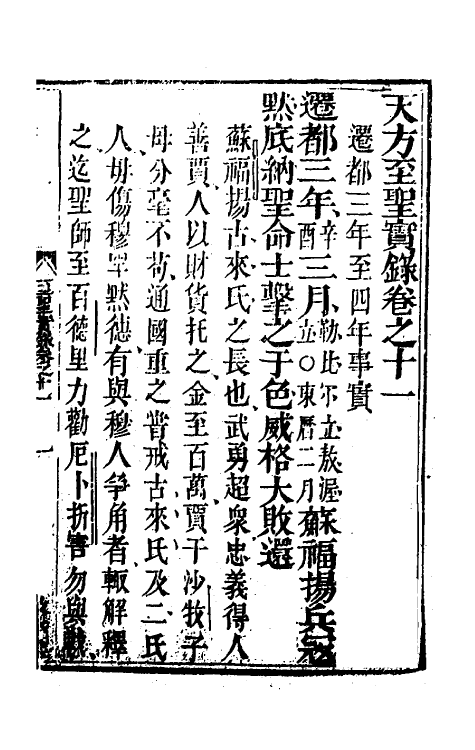 天方至聖實錄卷之十一
遷都三年至四年事實
遷都三年辛酉三月勒比尔立敖渥立〇東曆二月蘇福揚兵冦
默底納聖命士擊之于色威格大敗還
蘇福揚古來氏之長也武勇超衆忠義得人
善賈人以財貨托之金至百萬賈于沙牧子
母分毫不苟通國重之嘗戒古來氏及二氏
人毋傷穆罕默德有與穆人爭角者輙解釋
之迄聖師至百德里力勸厄卜折害勿與戰